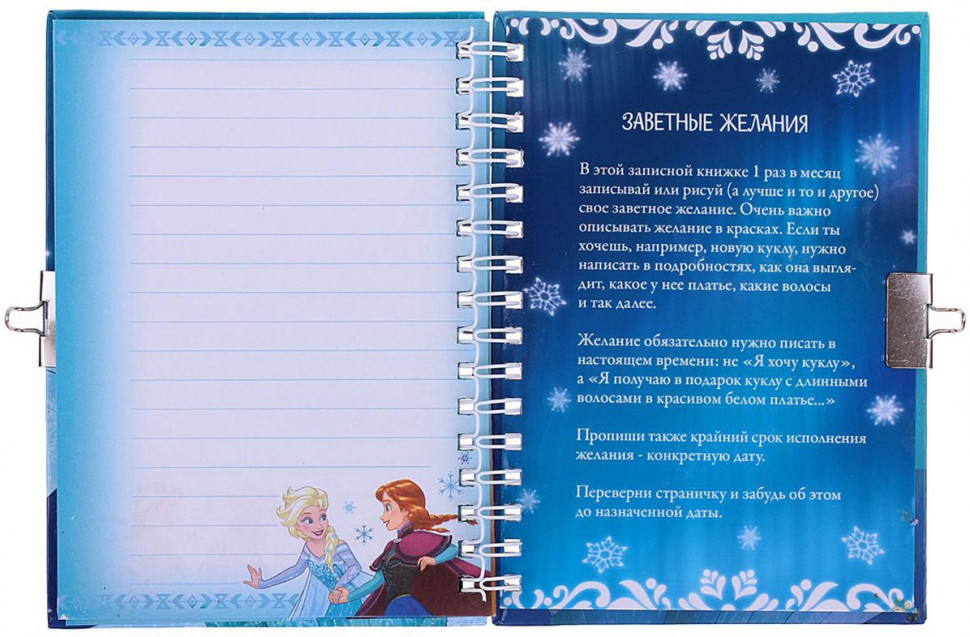 ЗАВЕТНЫЕ ЖЕЛАНИЯ
В этой записной книжке 1 раз в месяц
записывай или рисуй (а лучше и то и другое)
свое заветное желание. Очень важно
описывать желание в красках. Если ты
хочешь, например, новую куклу, нужно
написать в подробностях, как она выгля-
дит, какое у нее платье, какие волосы
и так далее.
Желание обязательно нужно писать в
настоящем времени: не «Я хочу куклу»,
а «Я получаю в подарок куклу с длинными
волосами в красивом белом платье...»
Пропиши также крайний срок исполнения
желания - конкретную дату.
Переверни страничку и забудь об этом
до назначенной даты.